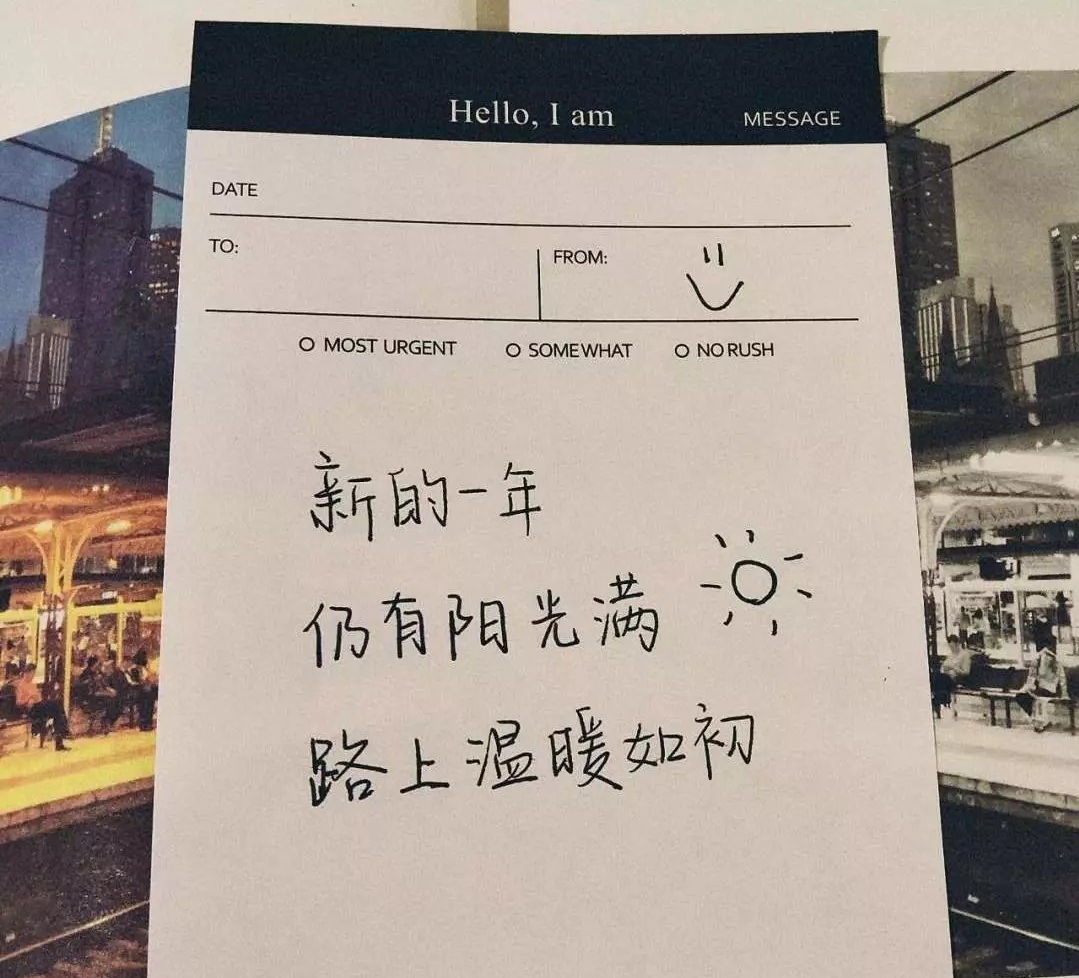 Hello, I am MESSAGE
DATE
TO: FROM:
O MOST URGENT O SOMEWHAT O NO RUSH
新的一年
仍有阳光满
路上温暖如初